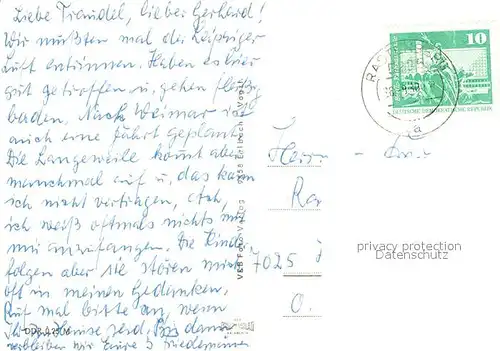 Liebe Traudel, lieber Gerhard!
Wir mußten mal der Leipziger
Luft entrinnen. Haben es hier
gut getroffen u. gehen fleißig
baden. Nach Weimar ist
auch eine Fahrt geplant.
Die Langeweile kommt aber
manchmal auf u. das kann
ich nicht vertragen, Ach,
ich weiß oftmals nichts mit
mir anzufangen. Die Kinder
folgen aber sie stören mich
oft in meinen Gedanken.
Ruft mal bitte an, wenn
Ihr zu Hause seid. Bis dann
verbleiben wir Eure 3
VEB Foto-Verlag Erlbach
10
DEUTSCHE DEMOKRATISCHE REPUBLIK
a
Herrn
7025
O.
privacy protection
Datenschutz